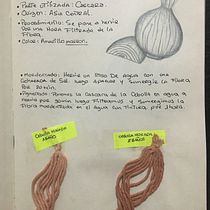 • Parte utilizada: Cascara.
• Origen: Asia Central
• Procedimiento: Se pone a hervir
por una hora Filtrado de la
Fibra
• Color: Amarillo marron.
• Mordentado: Hervir en litro de agua con una
cucharada de Sal, luego apagar y Sumergir la Fibra
por 20 min.
• Pigmentado: Ponemos la Cascara de la Cebolla en agua a
hervir por 30min luego Filtramos y Sumergimos la
Fibra mordentada en el agua con tintura por 1 hora.
CEBOLLA MORADA
CEBOLLA MORADA